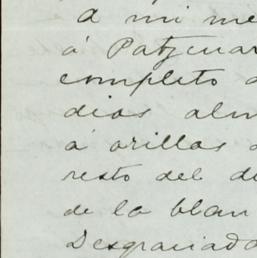 a mi me
á Patzcuar
completo d
dias alm
á orillas d
resto del d
de la blan
Desgraciada